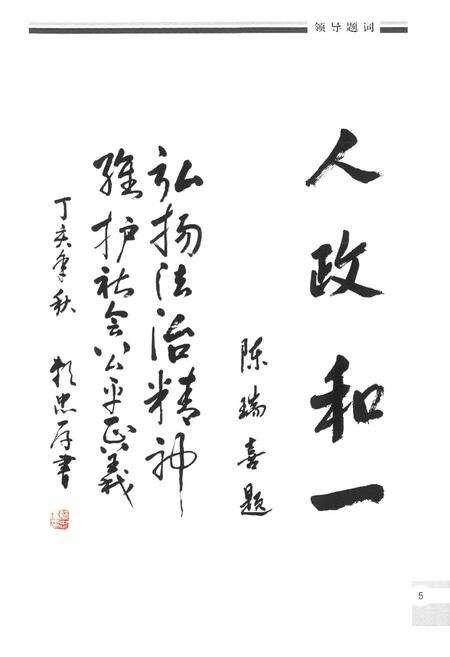 领导题词
人政和一
陈瑞喜题
弘扬法治精神
维护社会公平正义
丁亥年秋 赖忠厚书
5